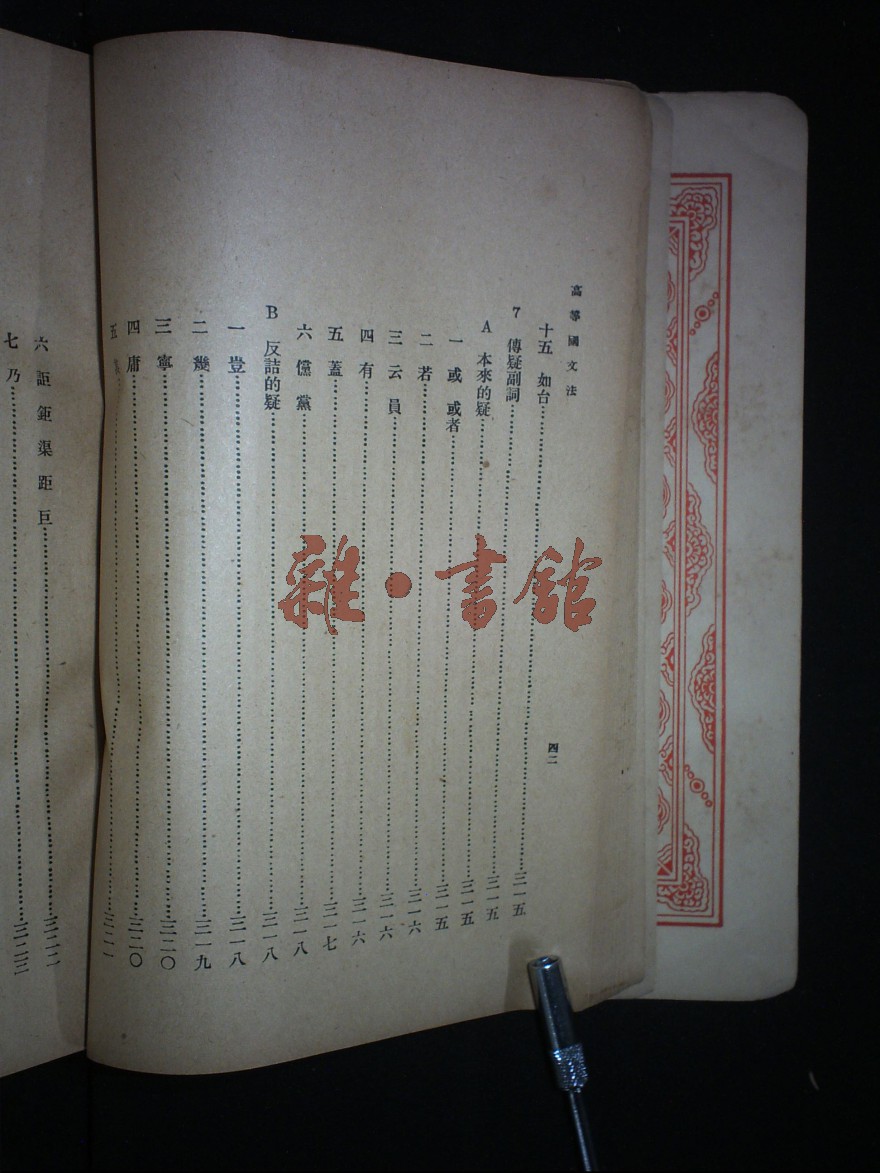 高等國文法
四二
十五 如台……三一五
7 傳疑副詞……三一五
A 本來的疑……三一五
一 或 或者……三一五
二 若……三一六
三 云 員……三一六
四 有……三一六
五 蓋……三一七
六 儻 黨……三一八
B 反詰的疑……三一八
一 豈……三一八
二 幾……三一九
三 寧……三二〇
四 庸……三二〇
五……三二一
六 詎 鉅 渠 距 巨……三二二
七 乃……三二三
雜·書館